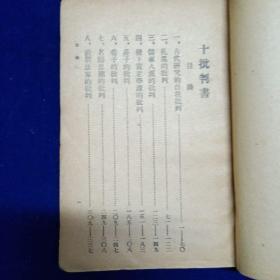 十批判書
目錄
一、古代研究的自我批判……一—七〇
二、孔墨的批判……七一—一二二
三、儒家八派的批判……一二三—一五〇
四、稷下黃老學派的批判……一五一—一八三
五、莊子的批判……一八五—二〇八
六、荀子的批判……二〇九—二四七
七、名辯思潮的批判……二四九—三〇八
八、前期法家的批判……三〇九—三三七